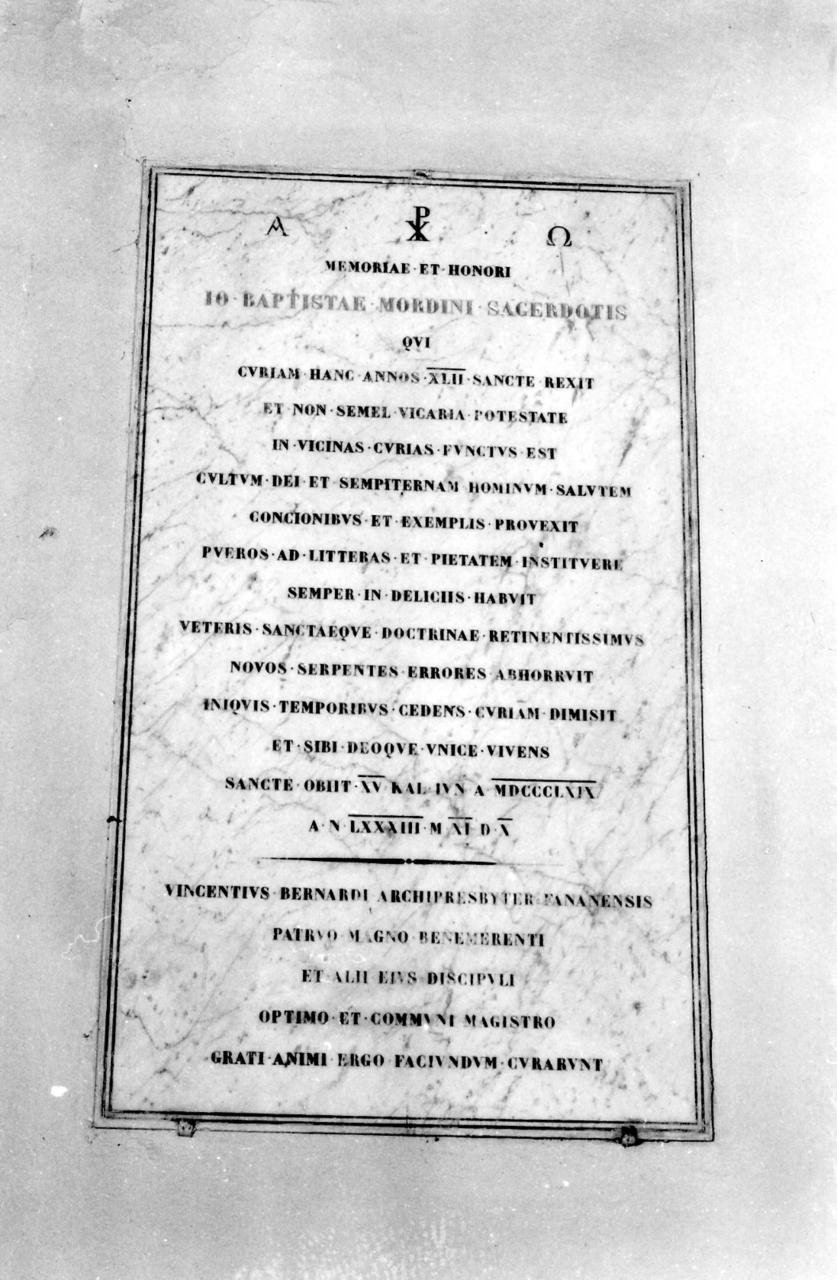 Α ☧ Ω
MEMORIAE·ET·HONORI
IO·BAPTISTAE·MORDINI·SACERDOTIS
QVI
CVRIAM·HANC·ANNOS·X̅L̅I̅I̅·SANCTE·REXIT
ET·NON·SEMEL·VICARIA·POTESTATE
IN·VICINAS·CVRIAS·FVNCTVS·EST
CVLTVM·DEI·ET·SEMPITERNAM·HOMINVM·SALVTEM
CONCIONIBVS·ET·EXEMPLIS·PROVEXIT
PVEROS·AD·LITTERAS·ET·PIETATEM·INSTITVERE
SEMPER·IN·DELICIIS·HABVIT
VETERIS·SANCTAEQVE·DOCTRINAE·RETINENTISSIMVS
NOVOS·SERPENTES·ERRORES·ABHORRVIT
INIQVIS·TEMPORIBVS·CEDENS·CVRIAM·DIMISIT
ET·SIBI·DEOQVE·VNICE·VIVENS
SANCTE·OBIIT·X̅V̅·KAL·IVN·A·M̅D̅C̅C̅C̅L̅X̅I̅X̅
A·N·L̅X̅X̅X̅I̅I̅I̅·M·X̅I̅·D·X̅
VINCENTIVS·BERNARDI·ARCHIPRESBYTER·FANANENSIS
PATRVO·MAGNO·BENEMERENTI
ET·ALII·EIVS·DISCIPVLI
OPTIMO·ET·COMMVNI·MAGISTRO
GRATI·ANIMI·ERGO·FACIVNDVM·CVRARVNT